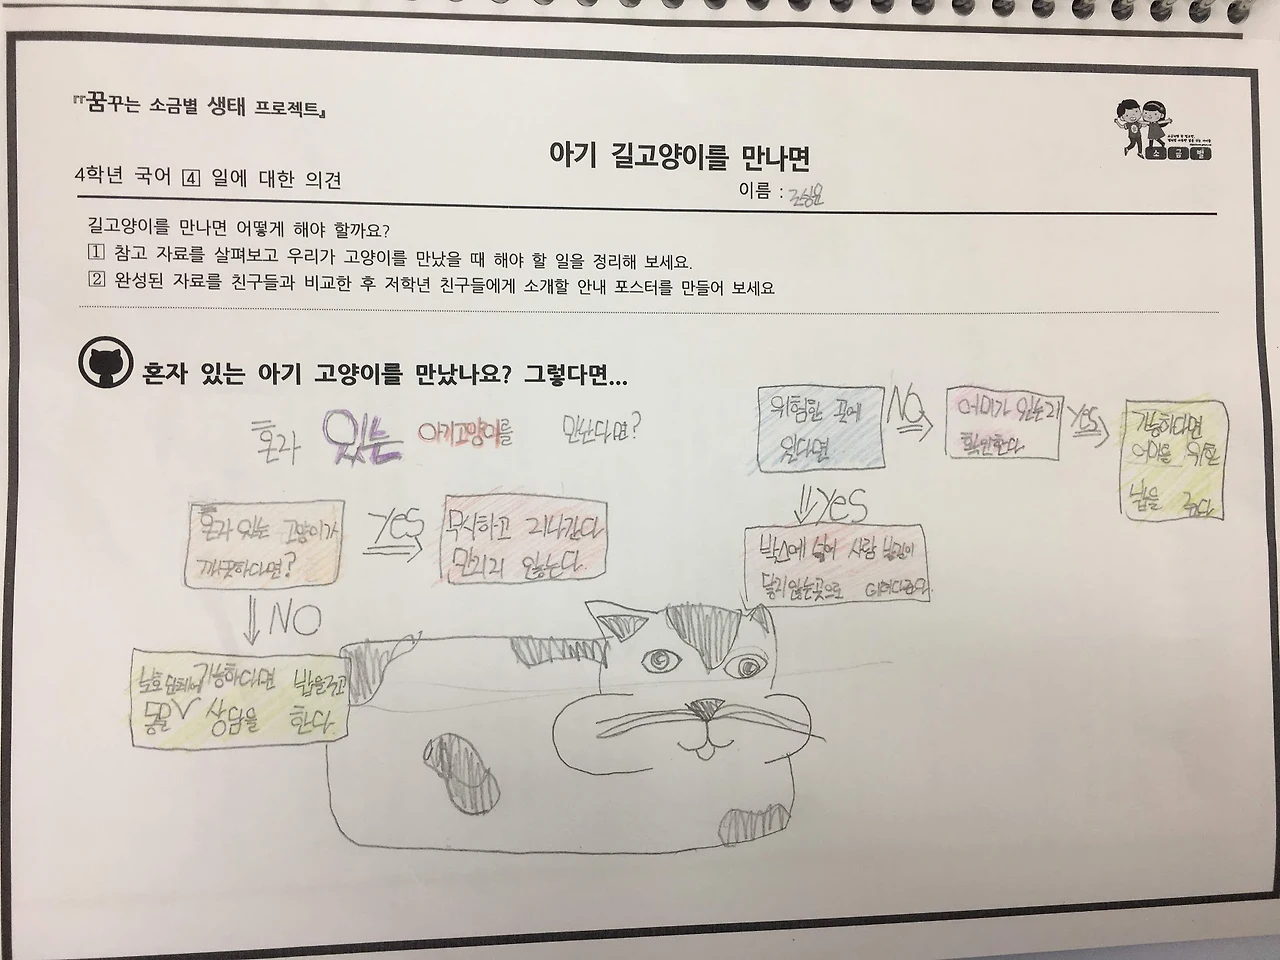 『꿈꾸는 소금별 생태 프로젝트』
아기 길고양이를 만나면
4학년 국어 4 일에 대한 의견
이름 :
소금별
길고양이를 만나면 어떻게 해야 할까요?
1 참고 자료를 살펴보고 우리가 고양이를 만났을 때 해야 할 일을 정리해 보세요.
2 완성된 자료를 친구들과 비교한 후 저학년 친구들에게 소개할 안내 포스터를 만들어 보세요
혼자 있는 아기 고양이를 만났나요? 그렇다면...
혼자 있는 아기고양이를 만난다면?
혼자 있는 고양이가
깨끗하다면?
YES
무시하고 지나간다
만지지 않는다.
NO
보호단체에 가능하다면 밥을주고
상담을 한다.
위험한 곳에
있다면
NO
어미가 있는지
확인한다.
YES
가능하다면
어미를 위한
밥을 준다
YES
박스에 넣어 사람
닿지않는곳으로